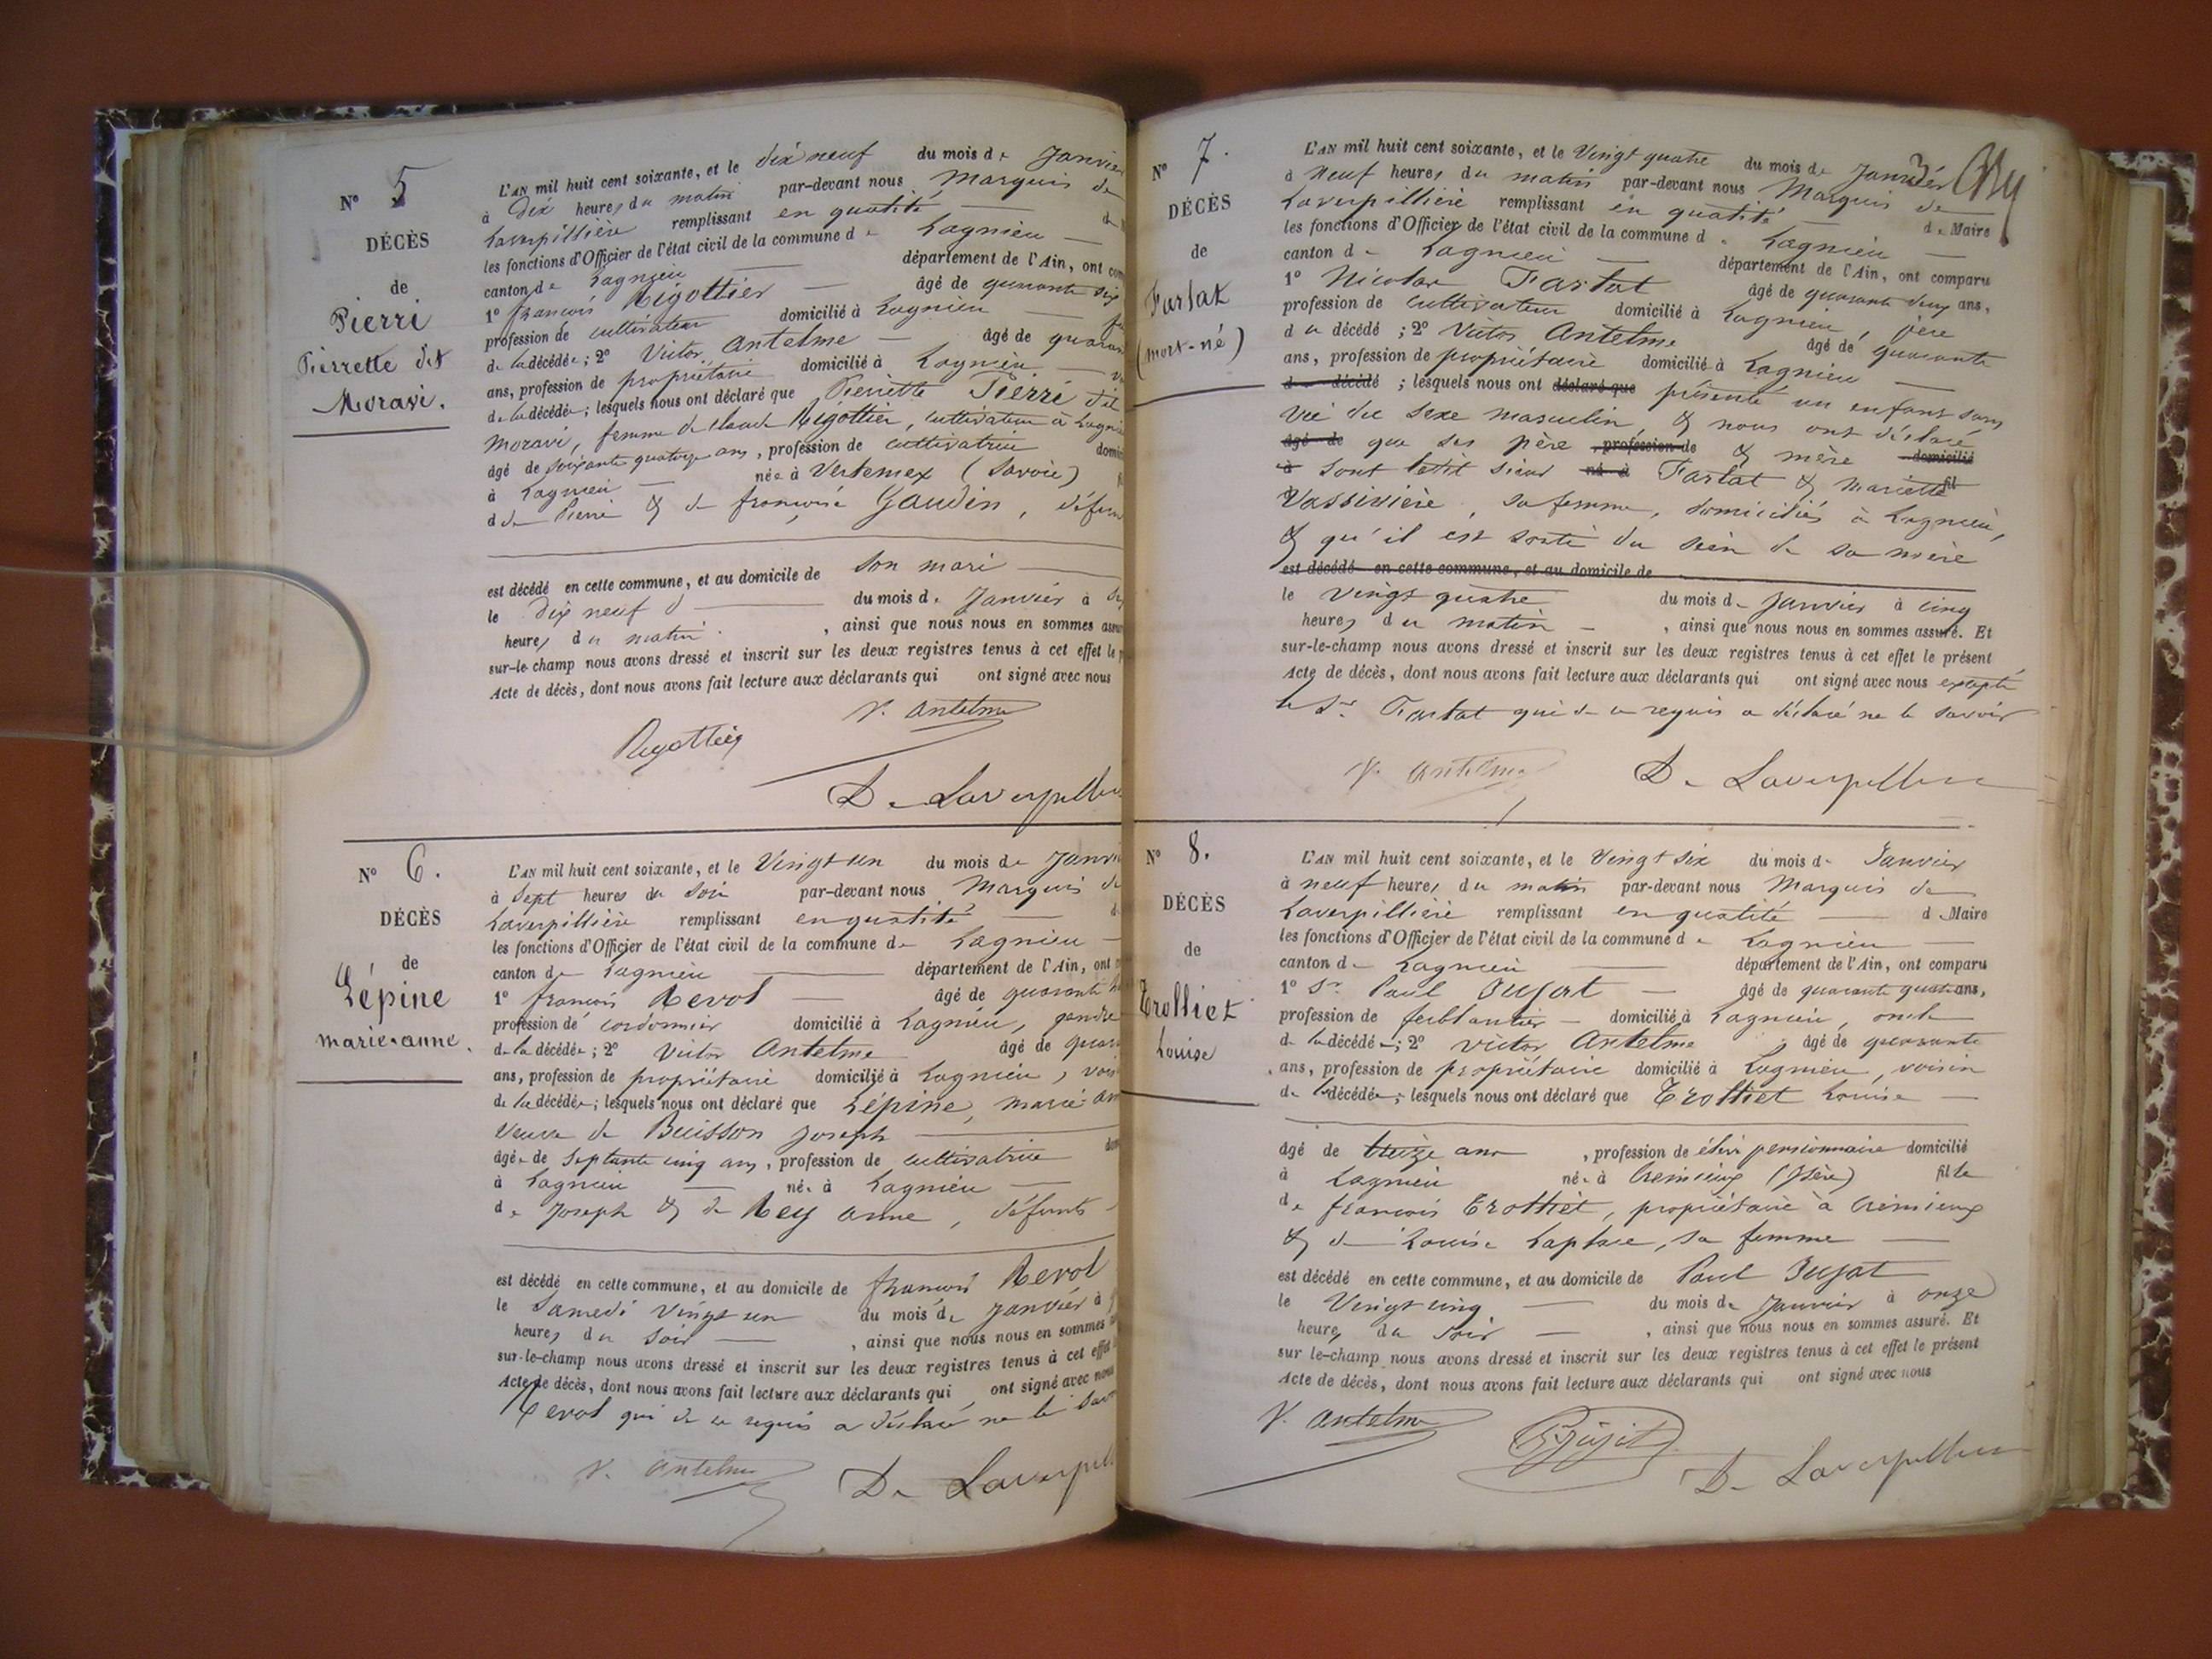 N° 5
DÉCÈS
de
Pierri
Pierrette dit
Moravi.
L'AN mil huit cent soixante, et le dix neuf du mois de Janvier
à Dix heures du matin par-devant nous Marquis de
Laverpillière remplissant en qualité
les fonctions d'Officier de l'état civil de la commune de Lagnieu
canton de Lagnieu département de l'Ain, ont
1° françois Rigottier âgé de quarante six
profession de cultivateur domicilié à Lagnieu
de la décédée ; 2° Victor Antelme âgé de
ans, profession de propriétaire domicilié à Lagnieu
de la décédée ; lesquels nous ont déclaré que Pierrette Pierri dit
Moravi, femme de Claude Rigottier, cultivateur à
âgé de soixante quatorze ans, profession de cultivatrice
à Lagnieu née à Vertemex (Savoie)
d de Pierre & de françoise Gaudin,
est décédé en cette commune, et au domicile de son mari
le dix neuf d du mois de Janvier à
heures du matin, ainsi que nous nous en sommes
sur-le champ nous avons dressé et inscrit sur les deux registres tenus à cet effet le
Acte de décès, dont nous avons fait lecture aux déclarants qui ont signé avec nous
V. Antelme
Rigottier
De Laverpillière
N° 6.
DÉCÈS
de
Lépine
marie-anne.
L'AN mil huit cent soixante, et le Vingt un du mois de
à Sept heures du soir par-devant nous Marquis de
Laverpillière remplissant en qualité
les fonctions d'Officier de l'état civil de la commune de Lagnieu
canton de Lagnieu département de l'Ain, ont
1° françois Revol âgé de quarante
profession de cordonnier domicilié à Lagnieu, gendre
de la décédée ; 2° Victor Antelme âgé de
ans, profession de propriétaire domicilié à Lagnieu,
de la décédée ; lesquels nous ont déclaré que Lépine, marie
veuve de Buisson Joseph
âgée de septante cinq ans, profession de cultivatrice
à Lagnieu née à Lagnieu
de Joseph & de Rey anne, défunts
est décédé en cette commune, et au domicile de françois Revol
le Samedi vingt un du mois de Janvier à
heures du soir, ainsi que nous nous en sommes
sur-le-champ nous avons dressé et inscrit sur les deux registres tenus à cet effet
Acte de décès, dont nous avons fait lecture aux déclarants qui ont signé avec nous
Revol qui de ce requis a déclaré ne le
V. Antelme De
N° 7.
DÉCÈS
de
Fastat
(mort-né)
3
L'AN mil huit cent soixante, et le Vingt quatre du mois de Janvier
à Neuf heures du matin par-devant nous Marquis de
Laverpillière remplissant en qualité de Maire
les fonctions d'Officier de l'état civil de la commune de Lagnieu
canton de Lagnieu département de l'Ain, ont comparu
1° Nicolas Fastat âgé de quarante deux ans,
profession de cultivateur domicilié à Lagnieu, père
du décédé ; 2° Victor Antelme âgé de quarante
ans, profession de propriétaire domicilié à Lagnieu
d décédé ; lesquels nous ont déclaré que présenté un enfant sans
vie du sexe masculin & nous ont déclaré
âgé de que ses père profession de & mère domicilié
à sont ledit sieur né à Fastat & mariette fil
Vassivière, sa femme, domiciliés à Lagnieu,
& qu'il est sorti du sein de sa mère
est décédé en cette commune, et au domicile de
le vingt quatre du mois de Janvier à cinq
heures du matin, ainsi que nous nous en sommes assuré. Et
sur-le-champ nous avons dressé et inscrit sur les deux registres tenus à cet effet le présent
Acte de décès, dont nous avons fait lecture aux déclarants qui ont signé avec nous excepté
le Sr. Fastat qui de ce requis a déclaré ne le savoir
V. Antelme De Laverpillière
N° 8.
DÉCÈS
de
Trolliet
Louise
L'AN mil huit cent soixante, et le Vingt six du mois de Janvier
à neuf heures du matin par-devant nous Marquis de
Laverpillière remplissant en qualité de Maire
les fonctions d'Officier de l'état civil de la commune de Lagnieu
canton de Lagnieu département de l'Ain, ont comparu
1° Sr. Paul Jujat âgé de quarante quatre ans,
profession de ferblantier domicilié à Lagnieu, oncle
de la décédée ; 2° Victor Antelme âgé de quarante
ans, profession de propriétaire domicilié à Lagnieu, voisin
de la décédée ; lesquels nous ont déclaré que Trolliet Louise
âgé de treize ans, profession de élève pensionnaire domicilié
à Lagnieu née à Crémieux (Isère) fille
de françois Trolliet, propriétaire à Crémieux
& de Louise Laplace, sa femme
est décédé en cette commune, et au domicile de Paul Jujat
le Vingt cinq du mois de Janvier à onze
heures du soir, ainsi que nous nous en sommes assuré. Et
sur le-champ nous avons dressé et inscrit sur les deux registres tenus à cet effet le présent
Acte de décès, dont nous avons fait lecture aux déclarants qui ont signé avec nous
V. Antelme
Jujat
De Laverpillière